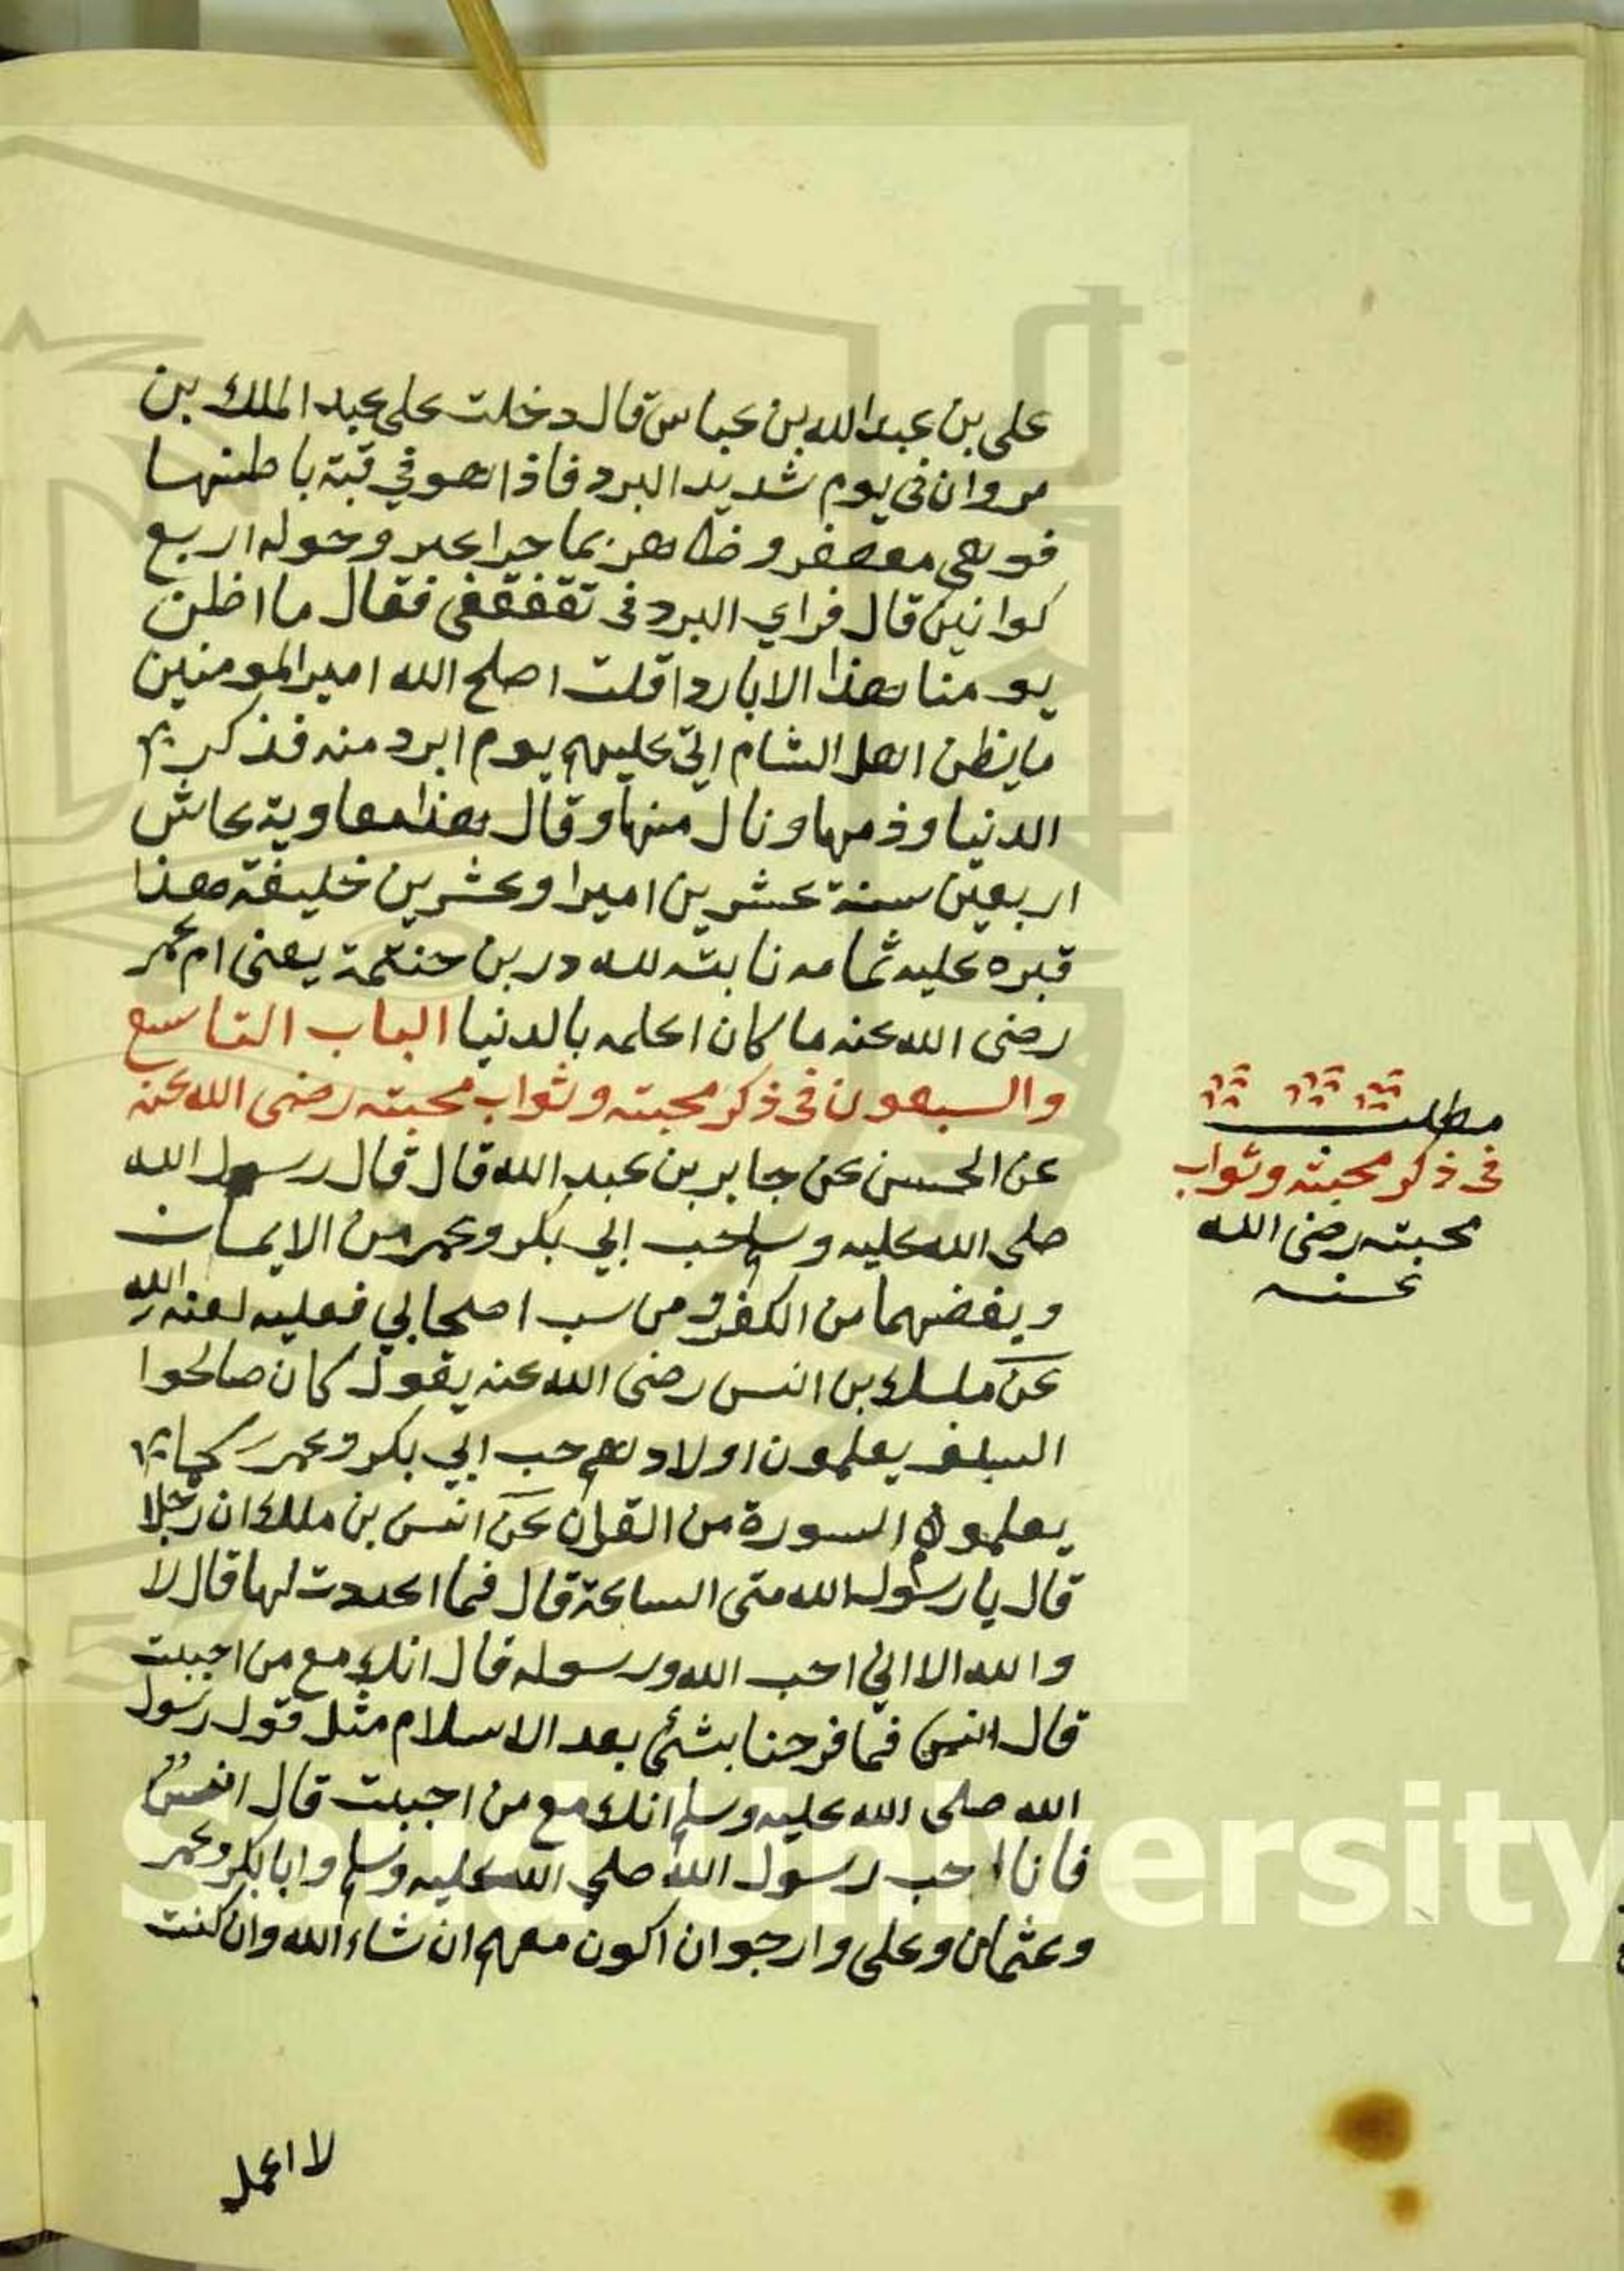 على بن عبد الله بن عباس قال دخلت على عبد الملك بن
مروان فى يوم شديد البرد فاذا هو في قبة باطنها
فوهى معصفر وظاهر بما حراعبر وحوله اربع
كوانين قال فراي البرد فى تقفقفى فقال ما اظن
يومنا هذا الا باردا قلت اصلح الله امير المومنين
ما يظن اهل الشام اتى عليهم يوم ابرد منه فذكر
الدنيا وذمها ونال منها وقال هذا معاوية عاش
اربعين سنة عشرين اميرا وعشرين خليفة هذا
قبره عليه ثمامه نابته لله در بن حنتمة يعنى ام عمر
رضى الله عنه ما كان اعلمه بالدنيا الباب التاسع
والسبعون فى ذكر محبته وثواب محبته رضى الله عنه
عن الحسن عن جابر بن عبد الله قال قال رسول الله
صلى الله عليه وسلم حب ابي بكر وعمر من الايمان
وبغضهما من الكفر ومن سب اصحابي فعليه لعنه الله
عن ملك بن انس رضى الله عنه يقول كان صالحوا
السلف يعلمون اولادهم حب ابي بكر وعمر كما
يعلمون السورة من القران عن انس بن ملك ان رجلا
قال يا رسول الله متى الساعة قال فما اعددت لها قال لا
والله الا اني احب الله ورسوله قال انك مع من احببت
قال انس فما فرحنا بشئ بعد الاسلام مثل قول رسول
الله صلى الله عليه وسلم انك مع من احببت قال انس
فانا احب رسول الله صلي الله عليه وسلم وابا بكر وعمر
وعثمان وعلى وارجوان اكون معهم ان شاء الله وان كنت
لا اعمل
مطلب
فى ذكر محبته وثواب
محبته رضى الله
عنه
King Saud University